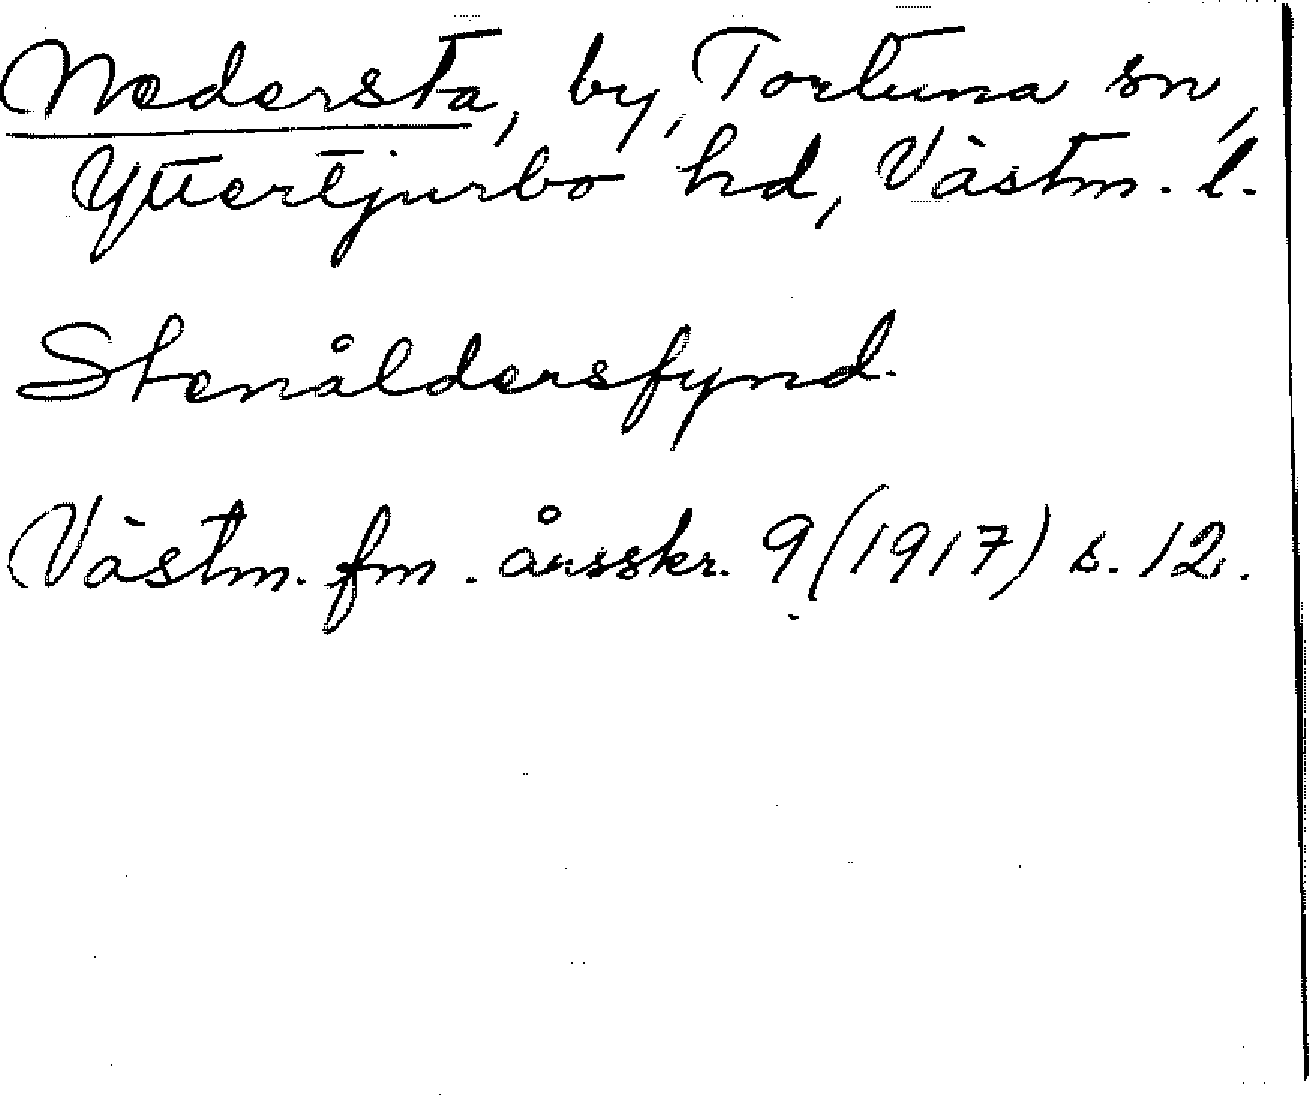 Nedersta, by, Tortuna sn,
Yttertjurbo hd, Västm. l.
Stenåldersfynd.
Västm. fm. årsskr. 9 (1917) s. 12.